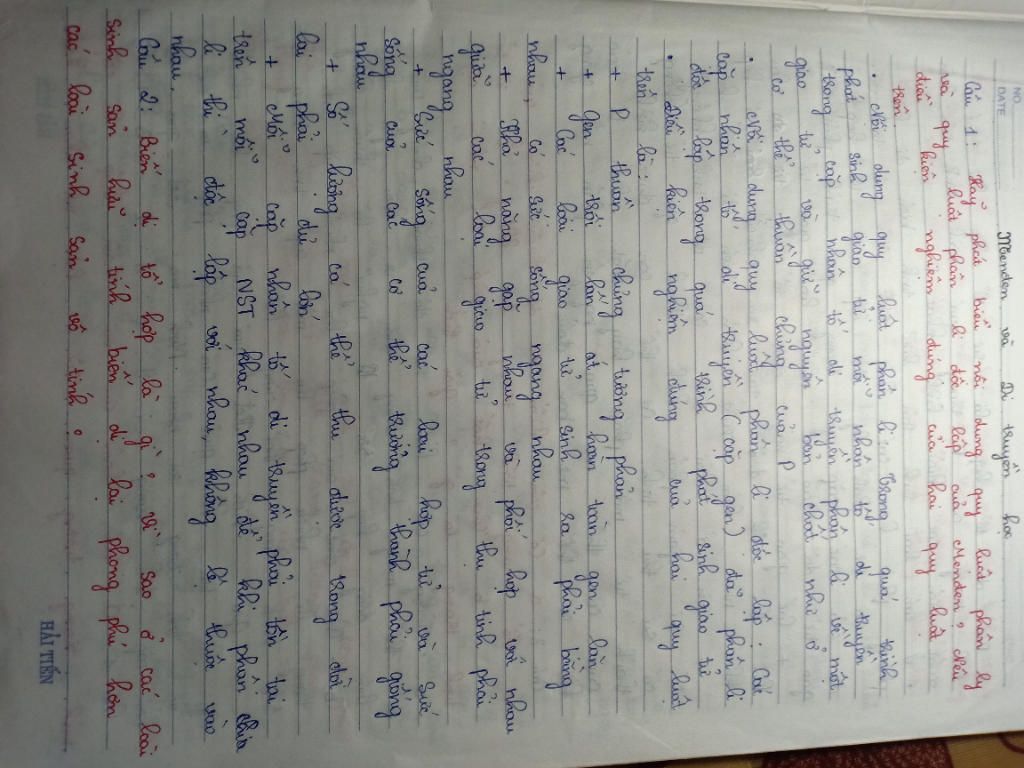 NO.
DATE
Menden và Di truyền học
Câu 1: Hãy phát biểu nội dung quy luật phân ly
và quy luật phân li độc lập của Menden? Nêu
điều kiện nghiệm đúng của hai quy luật
trên.
• Nội dung quy luật phân li: Trong quá trình
phát sinh giao tử mỗi nhân tố di truyền
trong cặp nhân tố di truyền phân li về một
giao tử và giữ nguyên bản chất như ở
cơ thể thuần chủng của P
• Nội dung quy luật phân li độc lập: Các
cặp nhân tố di truyền (cặp gen) đã phân li
độc lập trong quá trình phát sinh giao tử
• Điều kiện nghiệm đúng của hai quy luật
trên là:
+ P thuần chủng tương phản
+ Gen trội lấn át hoàn toàn gen lặn
+ Các loài giao tử sinh ra phải bằng
nhau, có sức sống ngang nhau
+ Khả năng gặp nhau và phối hợp với nhau
giữa các loại giao tử trong thụ tinh phải
ngang nhau
+ Sức sống của các loại hợp tử và sức
sống của các cơ thể trưởng thành phải giống
nhau
+ Số lượng cá thể thu được trong đời
lai phải đủ lớn
+ Mỗi cặp nhân tố di truyền phải tồn tại
trên mỗi cặp NST khác nhau để khi phân chia
li thì độc lập với nhau, không lệ thuộc vào
nhau.
Câu 2: Biến dị tổ hợp là gì? Vì sao ở các loài
sinh sản hữu tính biến dị lại phong phú hơn
các loài sinh sản vô tính?
HẢI TIẾN